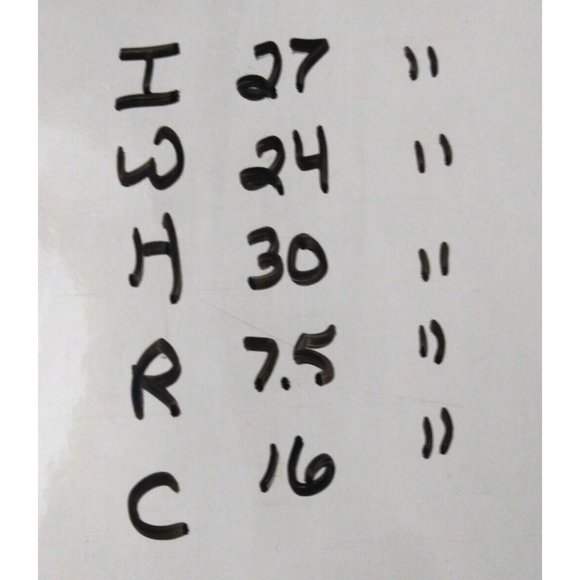 I 27 "
W 24 "
H 30 "
R 7.5 "
C 16 "